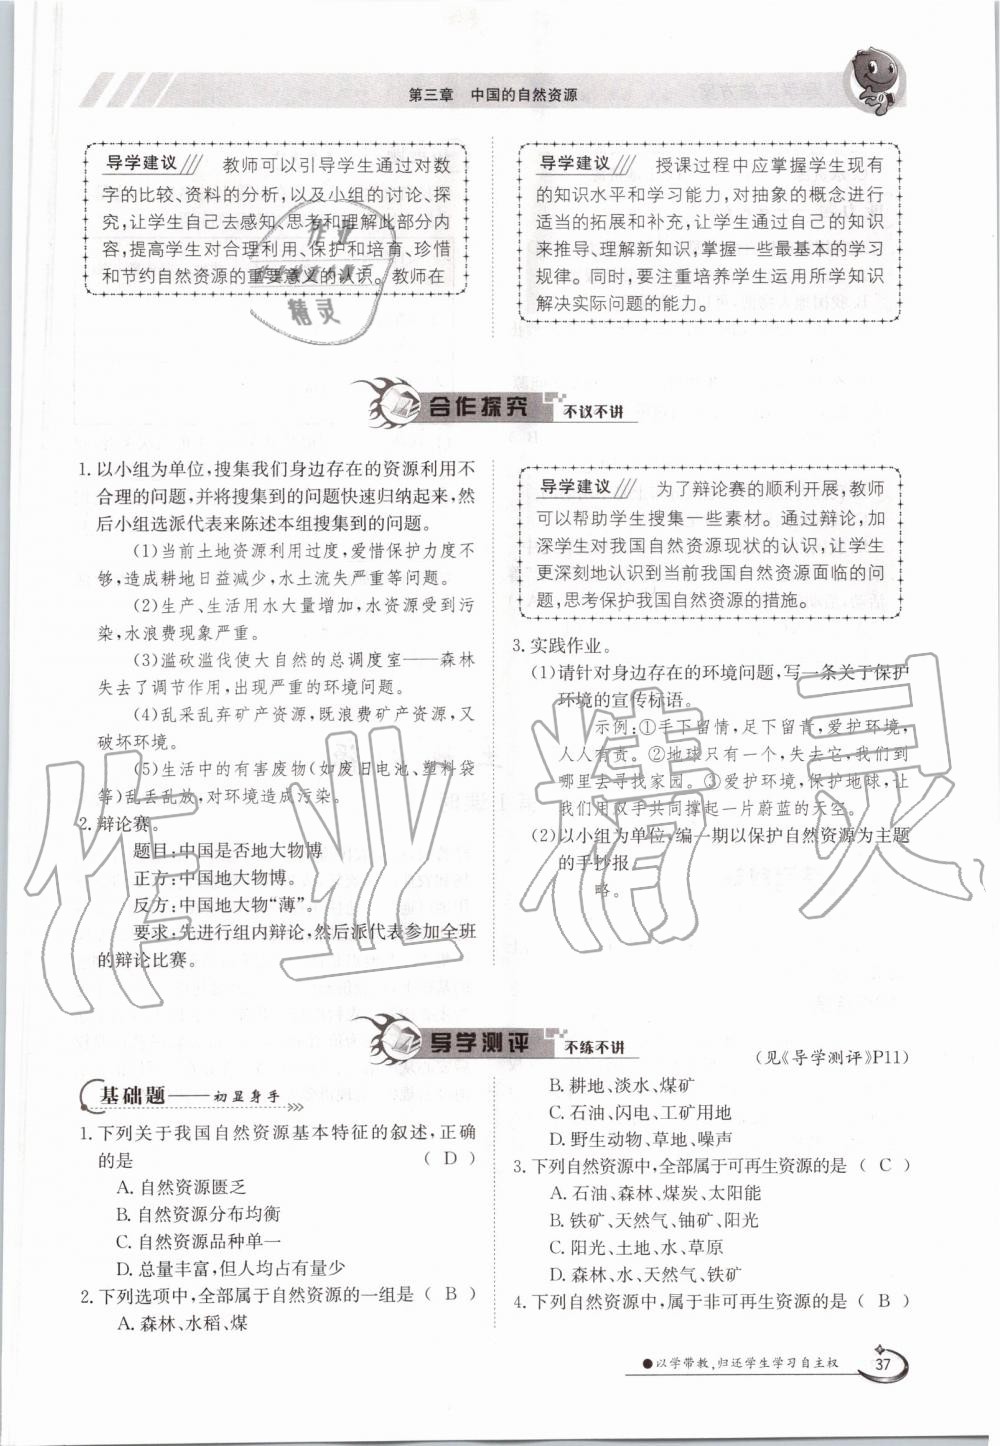 第三章 中国的自然资源
导学建议/// 教师可以引导学生通过对数
字的比较、资料的分析,以及小组的讨论、探
究,让学生自己去感知、思考和理解此部分内
容,提高学生对合理利用、保护和培育、珍惜
和节约自然资源的重要意义的认识。教师在
导学建议/// 授课过程中应掌握学生现有
的知识水平和学习能力,对抽象的概念进行
适当的拓展和补充,让学生通过自己的知识
来推导、理解新知识,掌握一些最基本的学习
规律。同时,要注重培养学生运用所学知识
解决实际问题的能力。
合作探究 不议不讲
1. 以小组为单位,搜集我们身边存在的资源利用不
合理的问题,并将搜集到的问题快速归纳起来,然
后小组选派代表来陈述本组搜集到的问题。
(1)当前土地资源利用过度,爱惜保护力度不
够,造成耕地日益减少,水土流失严重等问题。
(2)生产、生活用水大量增加,水资源受到污
染,水浪费现象严重。
(3)滥砍滥伐使大自然的总调度室——森林
失去了调节作用,出现严重的环境问题。
(4)乱采乱弃矿产资源,既浪费矿产资源,又
破坏环境。
(5)生活中的有害废物(如废旧电池、塑料袋
等)乱丢乱放,对环境造成污染。
2. 辩论赛。
题目:中国是否地大物博
正方:中国地大物博。
反方:中国地大物“薄”。
要求:先进行组内辩论,然后派代表参加全班
的辩论比赛。
导学建议/// 为了辩论赛的顺利开展,教师
可以帮助学生搜集一些素材。通过辩论,加
深学生对我国自然资源现状的认识,让学生
更深刻地认识到当前我国自然资源面临的问
题,思考保护我国自然资源的措施。
3. 实践作业。
(1)请针对身边存在的环境问题,写一条关于保护
环境的宣传标语。
示例:①手下留情,足下留青,爱护环境,
人人有责。②地球只有一个,失去它,我们到
哪里去寻找家园。③爱护环境,保护地球,让
我们用双手共同撑起一片蔚蓝的天空。
(2)以小组为单位,编一期以保护自然资源为主题
的手抄报。
略。
导学测评 不练不讲
(见《导学测评》P11)
基础题——初显身手
1. 下列关于我国自然资源基本特征的叙述,正确
的是 ( D )
A. 自然资源匮乏
B. 自然资源分布均衡
C. 自然资源品种单一
D. 总量丰富,但人均占有量少
2. 下列选项中,全部属于自然资源的一组是( B )
A. 森林、水稻、煤
B. 耕地、淡水、煤矿
C. 石油、闪电、工矿用地
D. 野生动物、草地、噪声
3. 下列自然资源中,全部属于可再生资源的是( C )
A. 石油、森林、煤炭、太阳能
B. 铁矿、天然气、铀矿、阳光
C. 阳光、土地、水、草原
D. 森林、水、天然气、铁矿
4. 下列自然资源中,属于非可再生资源的是( B )
●以学带教,归还学生学习自主权 37
作业精灵
作业
精灵